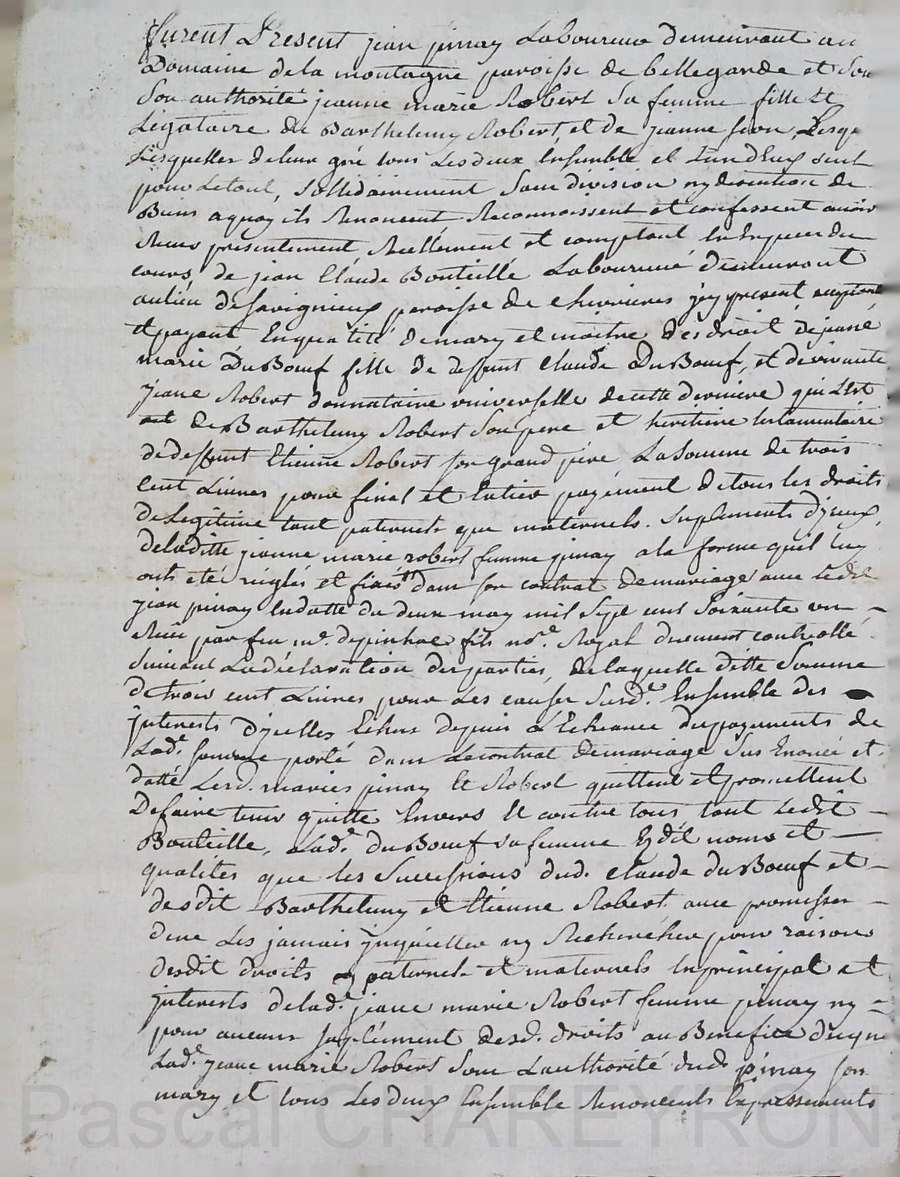 furent Present jean pinay Laboureur demeurant au
Domaine dela montagne paroisse de bellegarde et sou
Son authorité jeanne marie Robert sa femme fille et
Légataire de Barthelemy Robert, et de jeanne
Lesquelles deleur gré tous Les deux Ensemble et Lun d'Eux seul
pour Letout, Sollidairement Sans division ny discution de
Biens aquoy ils Renoncent Reconnoissent et confessent avoir
Receu présentement Reellement et comptant En Espece du
cours, de jean Claude Bouteille Laboureur demeurant
aulieu de Savignieux paroisse de Chevrieres jcy present acceptant
et payant Enqualité demary et maitre des droit dejeanne
marie DuBoeuf fille de deffunt claude DuBoeuf, et devivante
jeane Robert donnataire universelle decette derniere qui L'est
de Barthelemy Robert Son pere et heritiere testamentaire
dedeffunt Etienne Robert son grand pére La Somme de trois
cent Livres pour final et Entier payement detous les droits
de Legitime tant paternels que maternels. Suplements d'jceux,
deladitte jeanne marie robert femme pinay ala forme quil luy
onts eté réglés et fixés dans son contrat demariage avec ledit
jean pinay Endatte du deux may mil Sept cent Soixante un –
Receu par feu me depinhac fils nore. Royal duement controllé
Suivant Ladéclaration desparties, delaquelle ditte Somme
de trois cent Livres pour Les causes Susd. Ensemble des
jnterests d'jcelles Echus depuis L'Echeance despayements de
Lad. somme porté dans Lecontrat demariage Sus Enoncé et
datté Lesd. mariés pinay et Robert quittent et promettent
De faire tenir quitte Envers et contre tous tant ledit –
Bouteille, Lad. duBoeuf safemme Esdit noms et –
qualités que les Successions dud. claude DuBoeuf et –
desdit Barthelemy et Etienne Robert avec promesses –
dene Les jamais jnquietter ny Rechercher pour raison
desdit droits paternels et maternels Enprincipal et
jnterests delad. jeane marie Robert femme pinay ny –
pour aucuns suplément desd. droits au Benefice dequoy
Lad. jeane marie Robert Sous L'authorité dud. pinay son
mary et tous Les deux Ensemble Renoncents Expressements
Pascal CHAREYRON